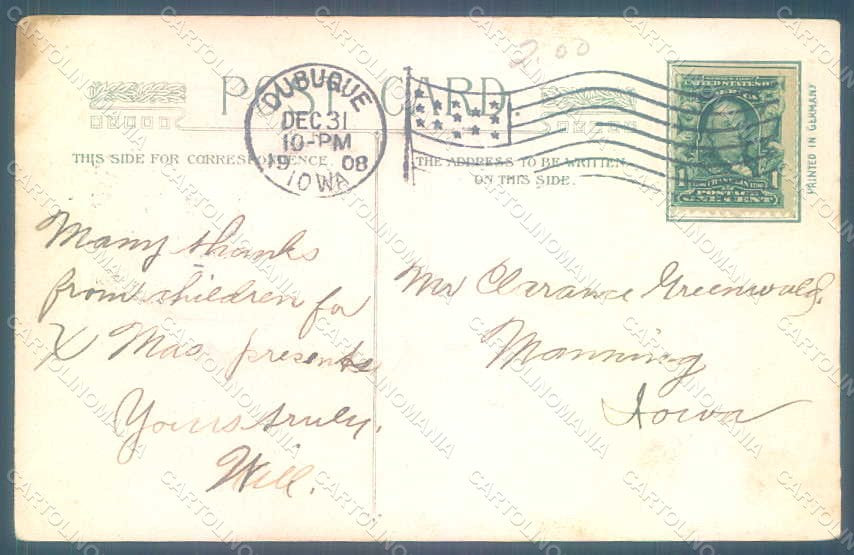 2.00
POST CARD
DUBUQUE
DEC 31
10-PM
19 08
IOWA
THIS SIDE FOR CORRESPONDENCE.
THE ADDRESS TO BE WRITTEN
ON THIS SIDE.
PRINTED IN GERMANY
1 1
POSTAGE
ONE CENT
Many thanks
from children for
X Mas presents
Yours truly,
Will.
Mr Clarance Greenwald,
Manning
Iowa
CARTOLINOMANIA